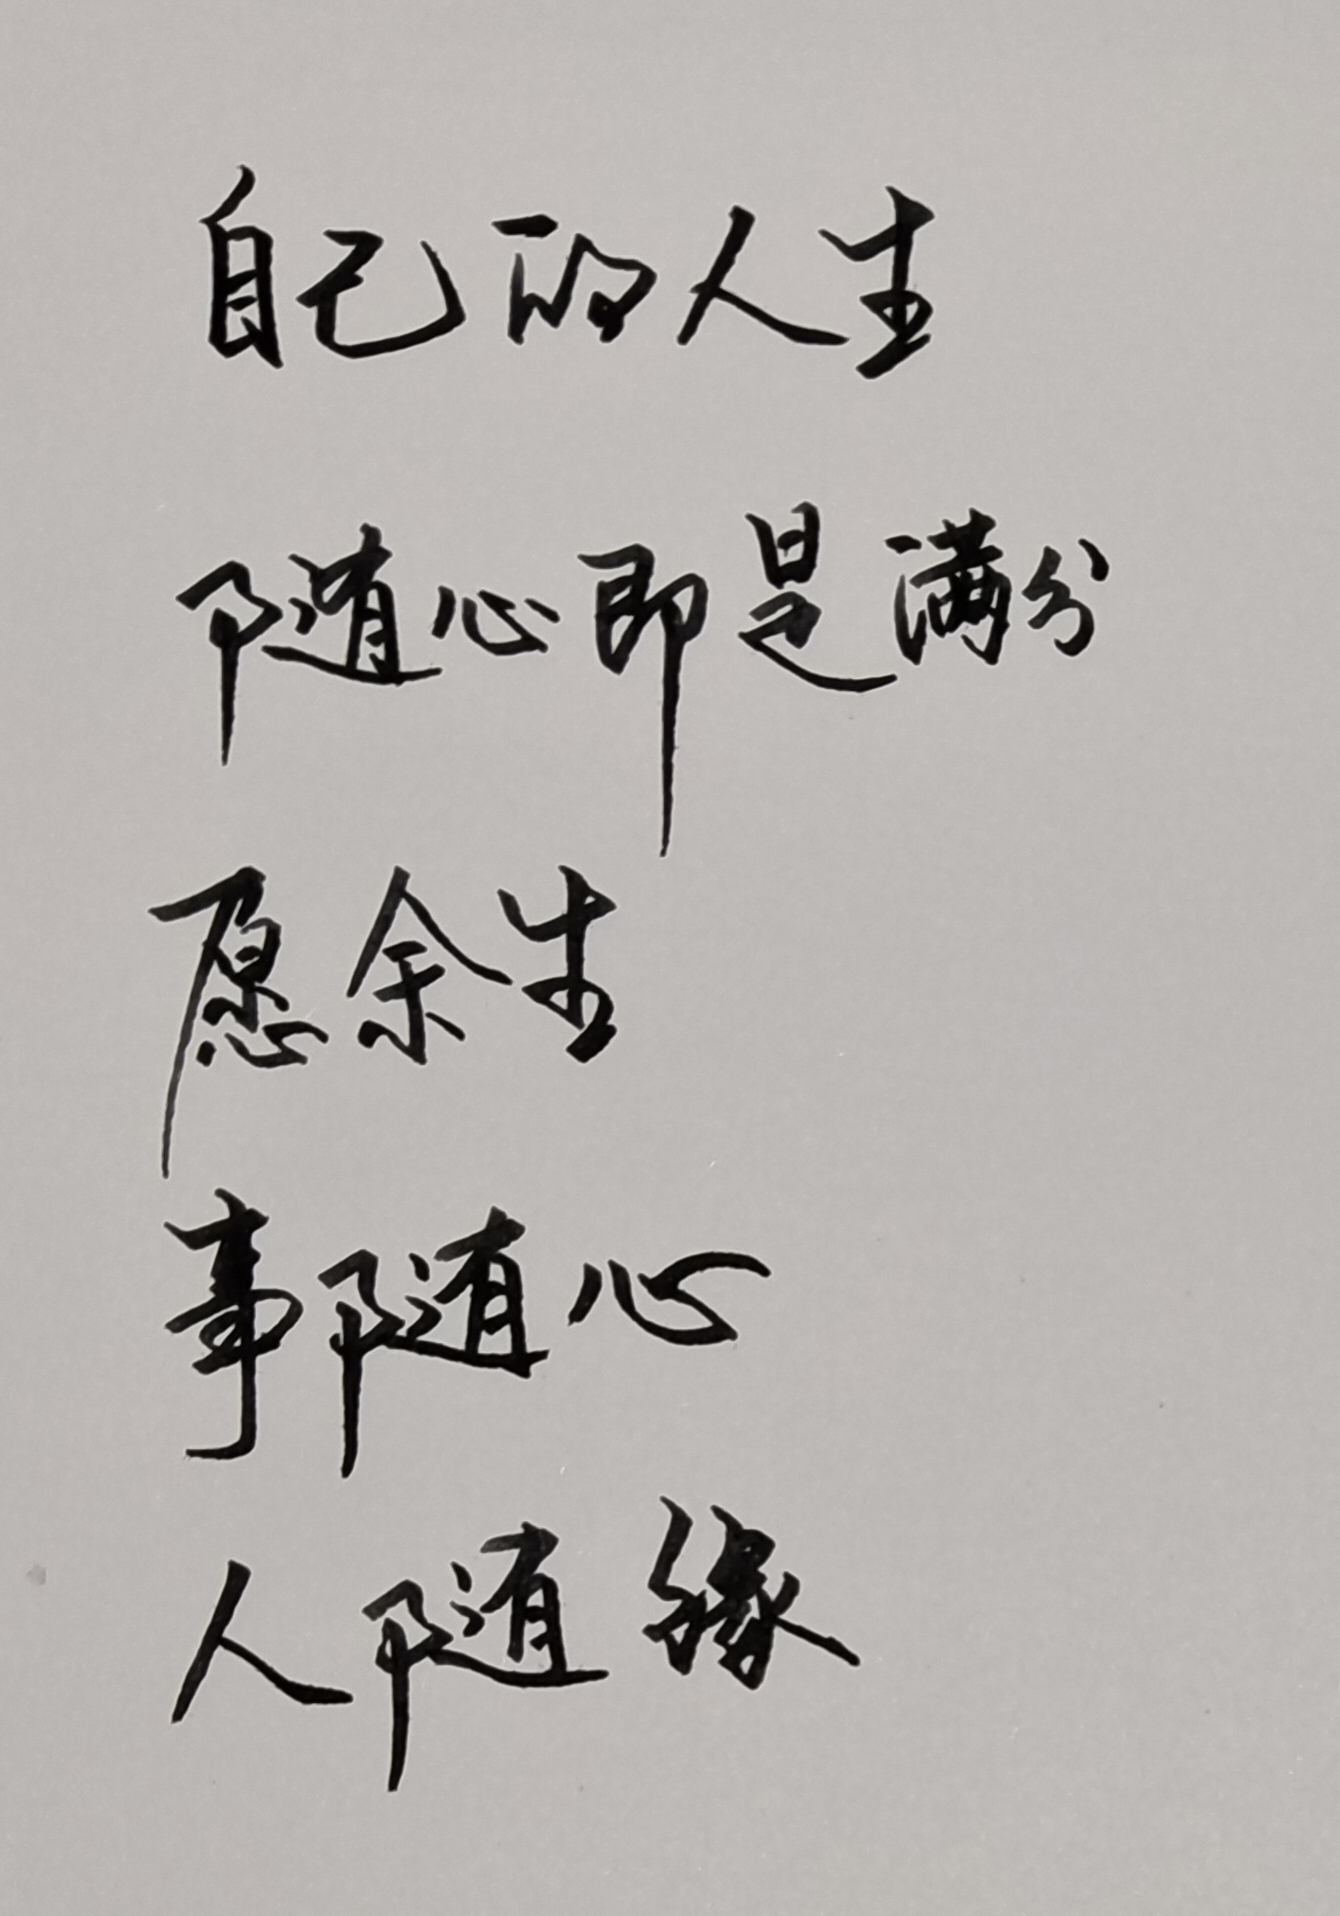 自己的人生
随心即是满分
愿余生
事随心
人随缘